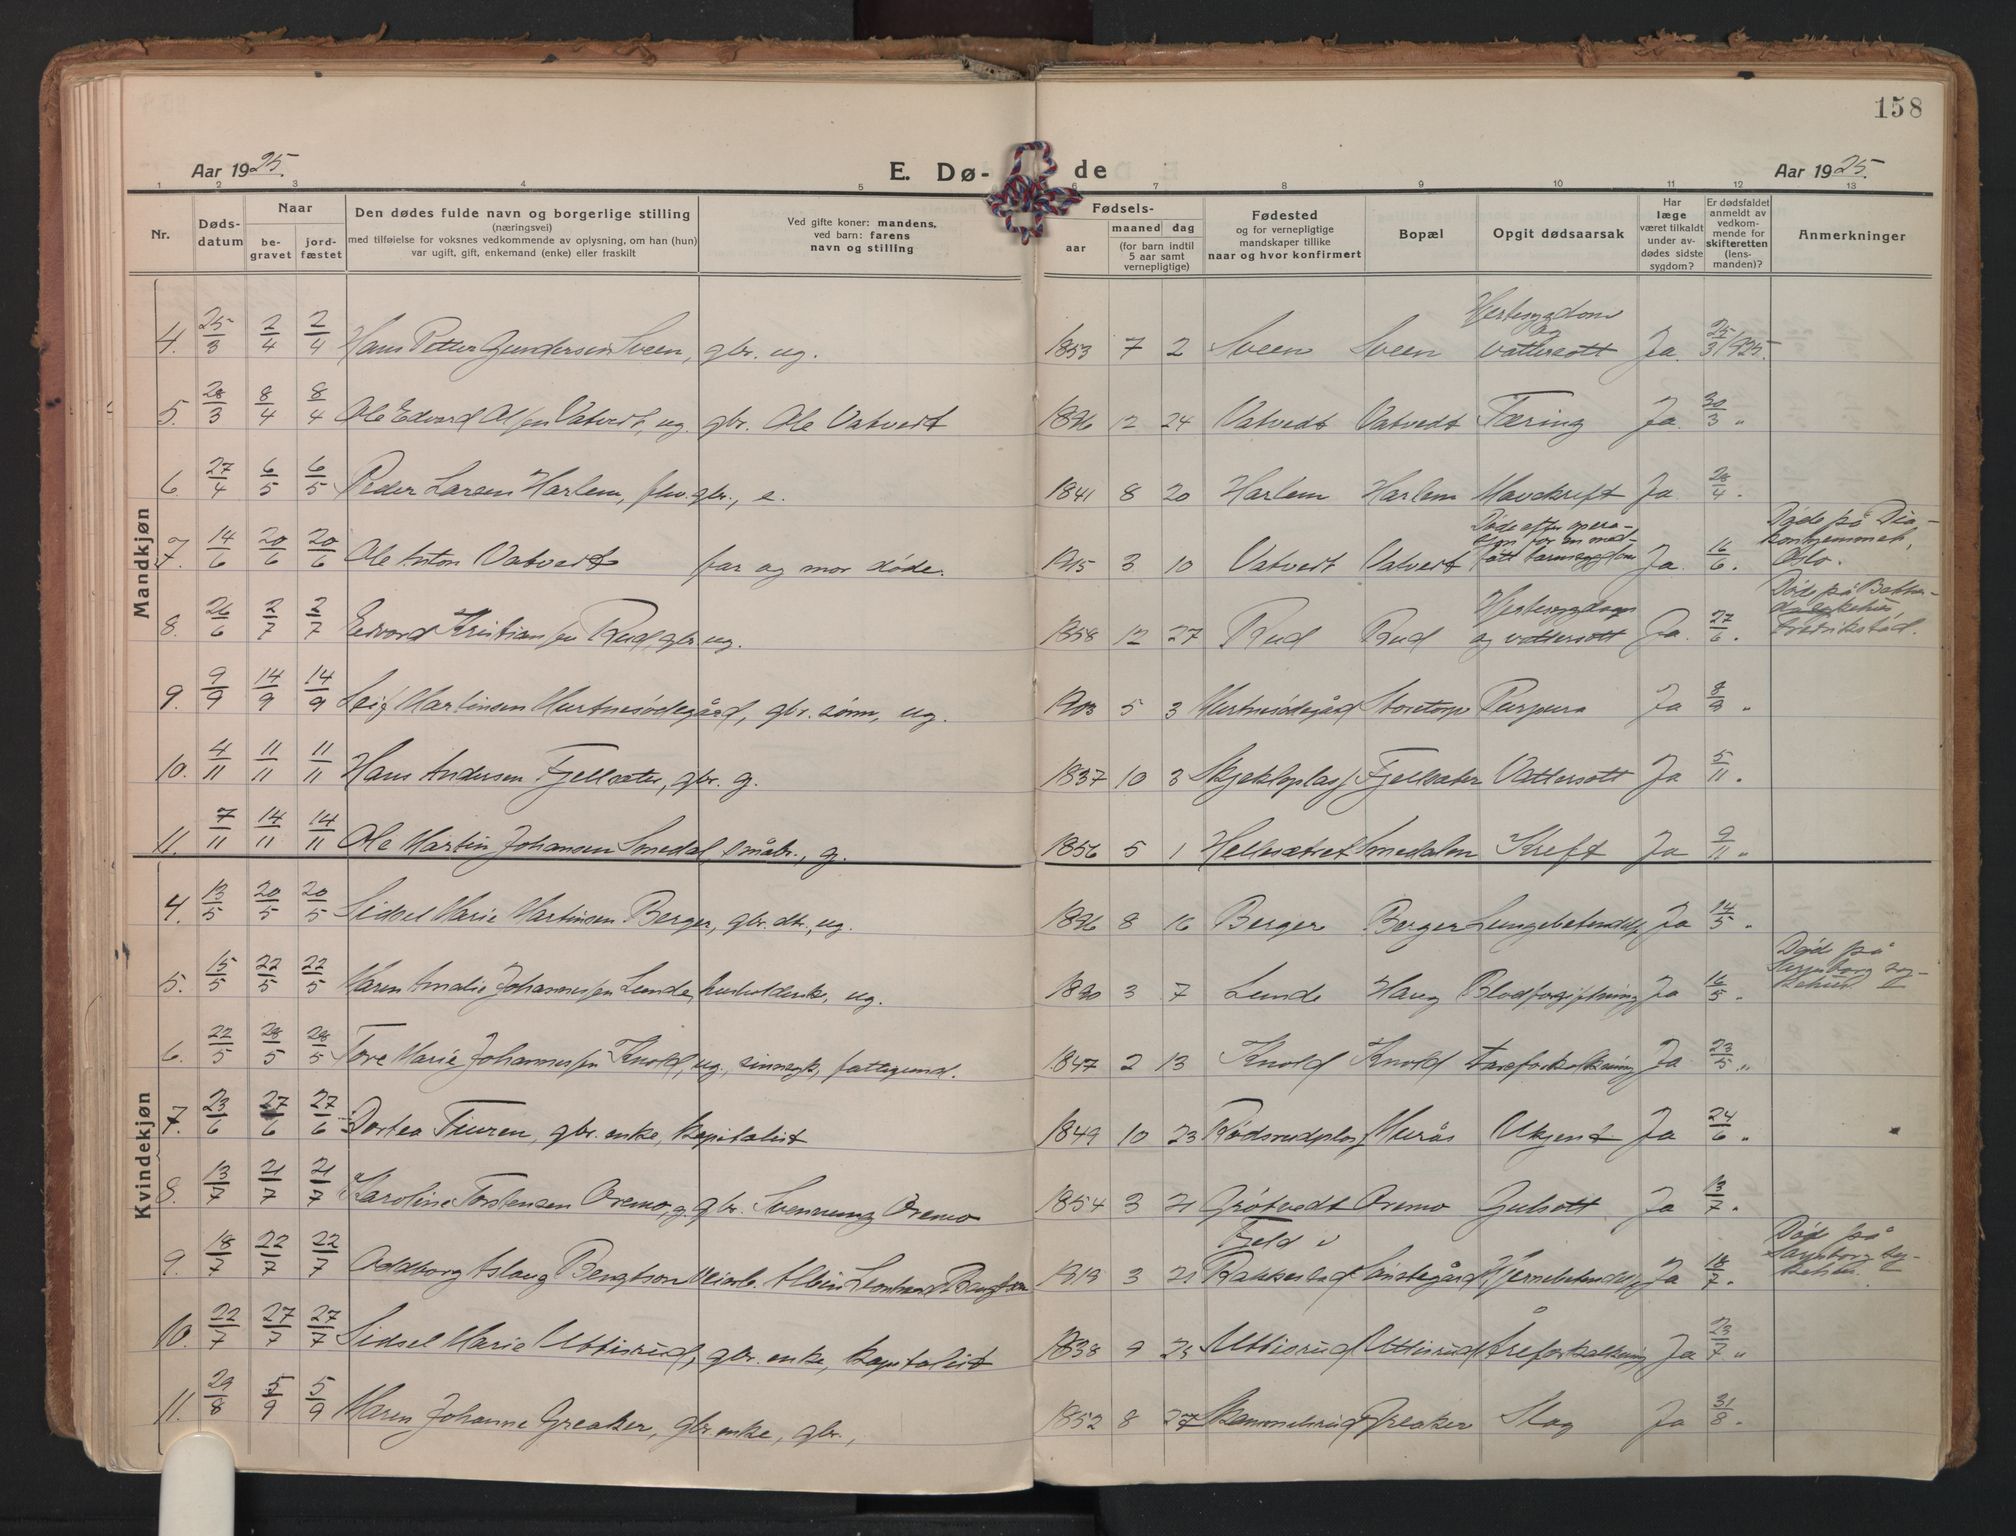 158
Aar 1925. E. Dø- de Aar 1925.
1 2 3 4 5 6 7 8 9 10 11 12 13
Nr. Døds-datum Naar be-gravet jord-fæstet Den dødes fulde navn og borgerlige stilling (næringsvei) med tilføielse for voksnes vedkommende av oplysning, om han (hun) var ugift, gift, enkemand (enke) eller fraskilt Ved gifte koner: mandens, ved barn: farens navn og stilling Fødsels- aar maaned dag (for barn indtil 5 aar samt vernepligtige) Fødested og for vernepligtige mandskaper tillike naar og hvor konfirmert Bopæl Opgit dødsaarsak Har læge været tilkaldt under av-dødes sidste sygdom? Er dødsfaldet anmeldt av vedkom-mende for skifteretten (lens-manden)? Anmerkninger
Mandkjøn
4. 25/3 2/4 2/4 Hans Petter Gundersen Sveen, gbr. ug. 1853 7 2 Sveen Sveen Hjertesygdom og vattersott Ja. 25/3 1925.
5. 28/3 8/4 8/4 Ole Edvard Olsen Vatvedt, ug. gbr. Ole Vatvedt 1896 12 24 Vatvedt Vatvedt Tæring Ja 30/3 "
6. 27/4 6/5 6/5 Peder Larsen Harlem, fhv. gbr., e. 1841 8 20 Harlem Harlem Mavekreft Ja 28/4 "
7. 14/6 20/6 20/6 Ole Anton Vatvedt far og mor døde. 1915 3 10 Vatvedt Vatvedt Døde efter opera-sjon for en med-født tarmsygdom Ja. 16/6 " Døde på Dia-konhjemmet, Oslo.
8. 26/6 2/7 2/7 Edvard Kristiansen Rud, gbr. ug. 1858 12 27 Rud Rud Hjertesygdom og vattersott Ja. 27/6 " Døde på Fredrikstad.
9. 9/9 14/9 14/9 Leif Martinsen Murtnesødegård, gbr. sønn, ug. 1903 5 3 Murtnesødegård Storetorp Purpura Ja 8/9 "
10. 4/11 11/11 11/11 Hans Andersen Fjellsæter, gbr. g. 1837 10 3 Fjellsæter Vattersott Ja 5/11 "
11. 7/11 14/11 14/11 Ole Martin Johansen Smedal, småbr., g. 1856 5 1 Hellesætret Smedalen Kreft Ja 9/11 "
Kvindekjøn
4. 13/5 20/5 20/5 Sidsel Marie Martinsen Berger, gbr. dtr., ug. 1896 8 16 Berger Berger Lungebetendelse Ja 14/5 "
5. 15/5 22/5 22/5 Maren Amalie Johannessen Lunde, husholdersk, ug. 1890 3 7 Lunde Haug Blodforgiftning Ja 16/5 " Død på Sarpsborg sy-kehus
6. 22/5 28/5 28/5 Tore Marie Johannessen Knold, ug., sinnsyk, fattigund. 1847 2 13 Knold Knold Åreforkalkning Ja 23/5 "
7. 23/6 27/6 27/6 Dortea Tiuren, gbr. enke, kapitalist 1849 10 23 Rødsrudplass Murås Ukjent Ja 24/6 "
8. 13/7 21/7 21/7 Karoline Torstensen Oremo, g. gbr. Svennung Oremo 1854 3 21 Grøtvedt Oremo Gulsott Ja 13/7 "
9. 18/7 22/7 22/7 Oddborg Aslaug Bengtson Albin Leonhardt Bengtson 1919 3 21 Fjeld i Rakkestad Hjernebetendelse Ja 18/7 " Død på Sarpsborg sy-kehus.
10. 22/7 27/7 27/7 Sidsel Marie Uttisrud, gbr. enke, kapitalist 1838 9 25 Uttisrud Uttisrud Åreforkalkning Ja 23/7 "
11. 29/8 5/9 5/9 Maren Johanne Greaker, gbr. enke, gbr., 1852 8 27 Skammelsrud Greaker Slag Ja 31/8 "